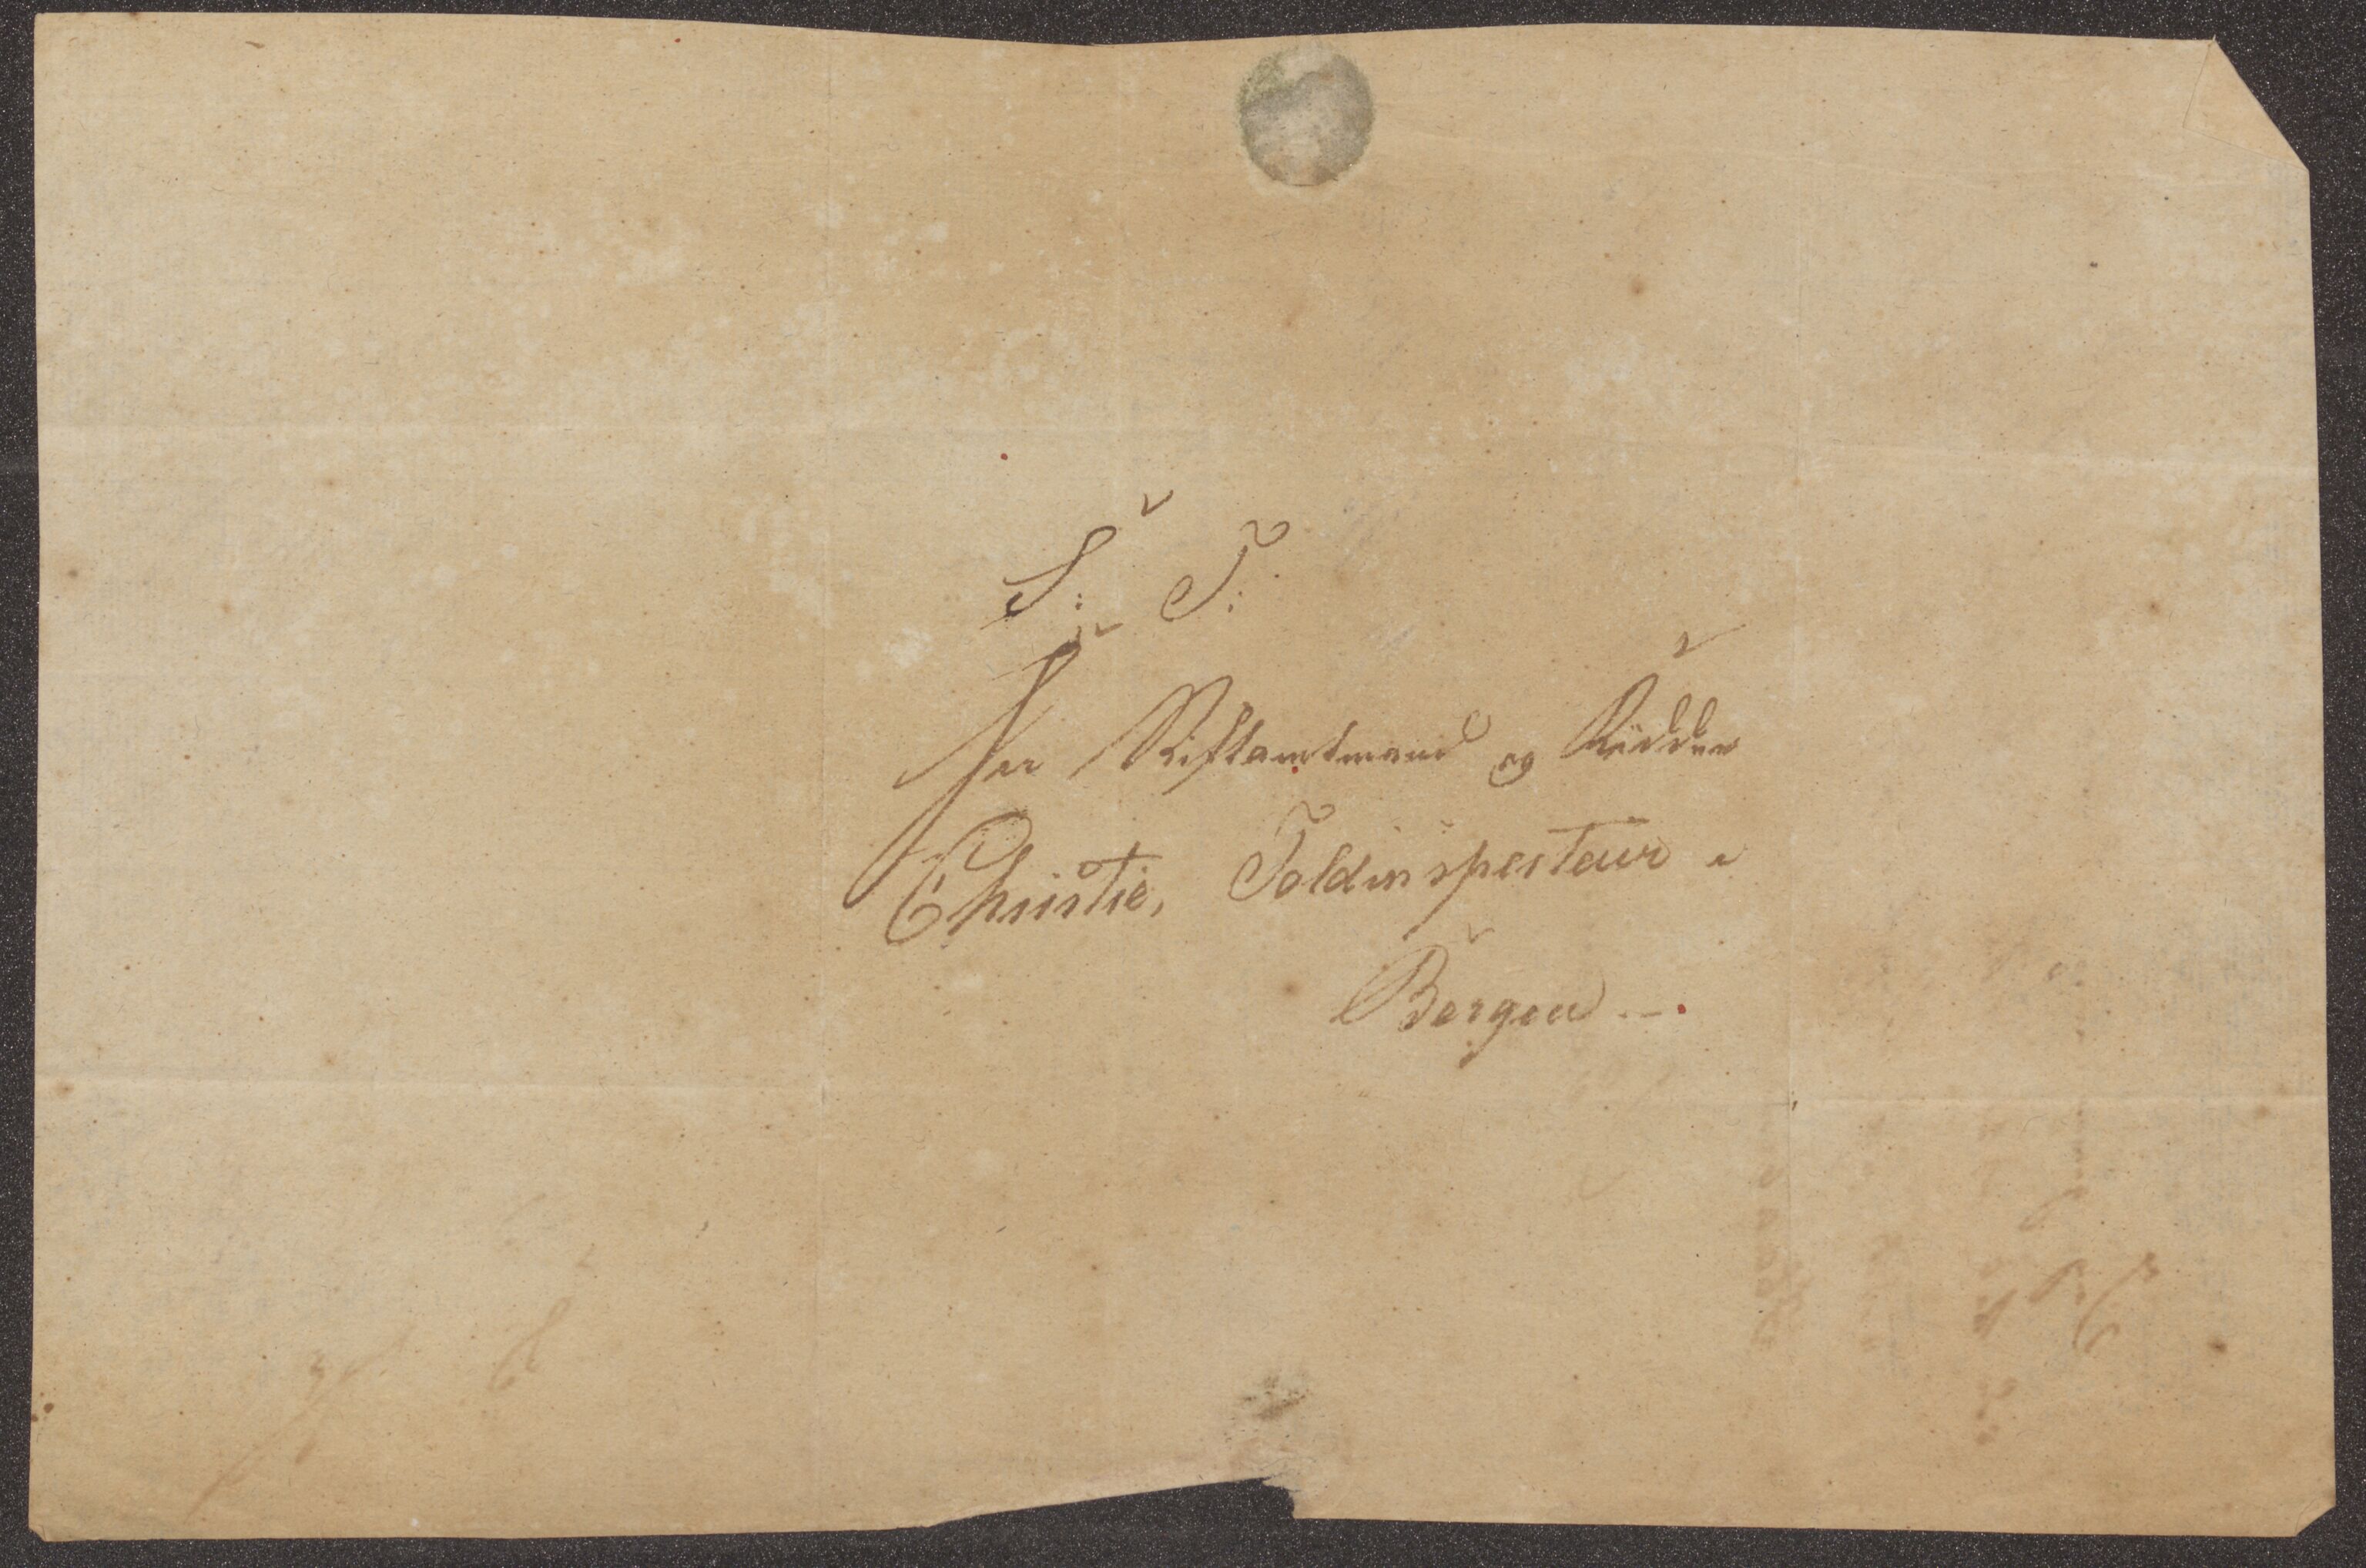 S: T:
Herr Stiftamtmand og Ridder
Christie, Toldinspecteur i
Bergen